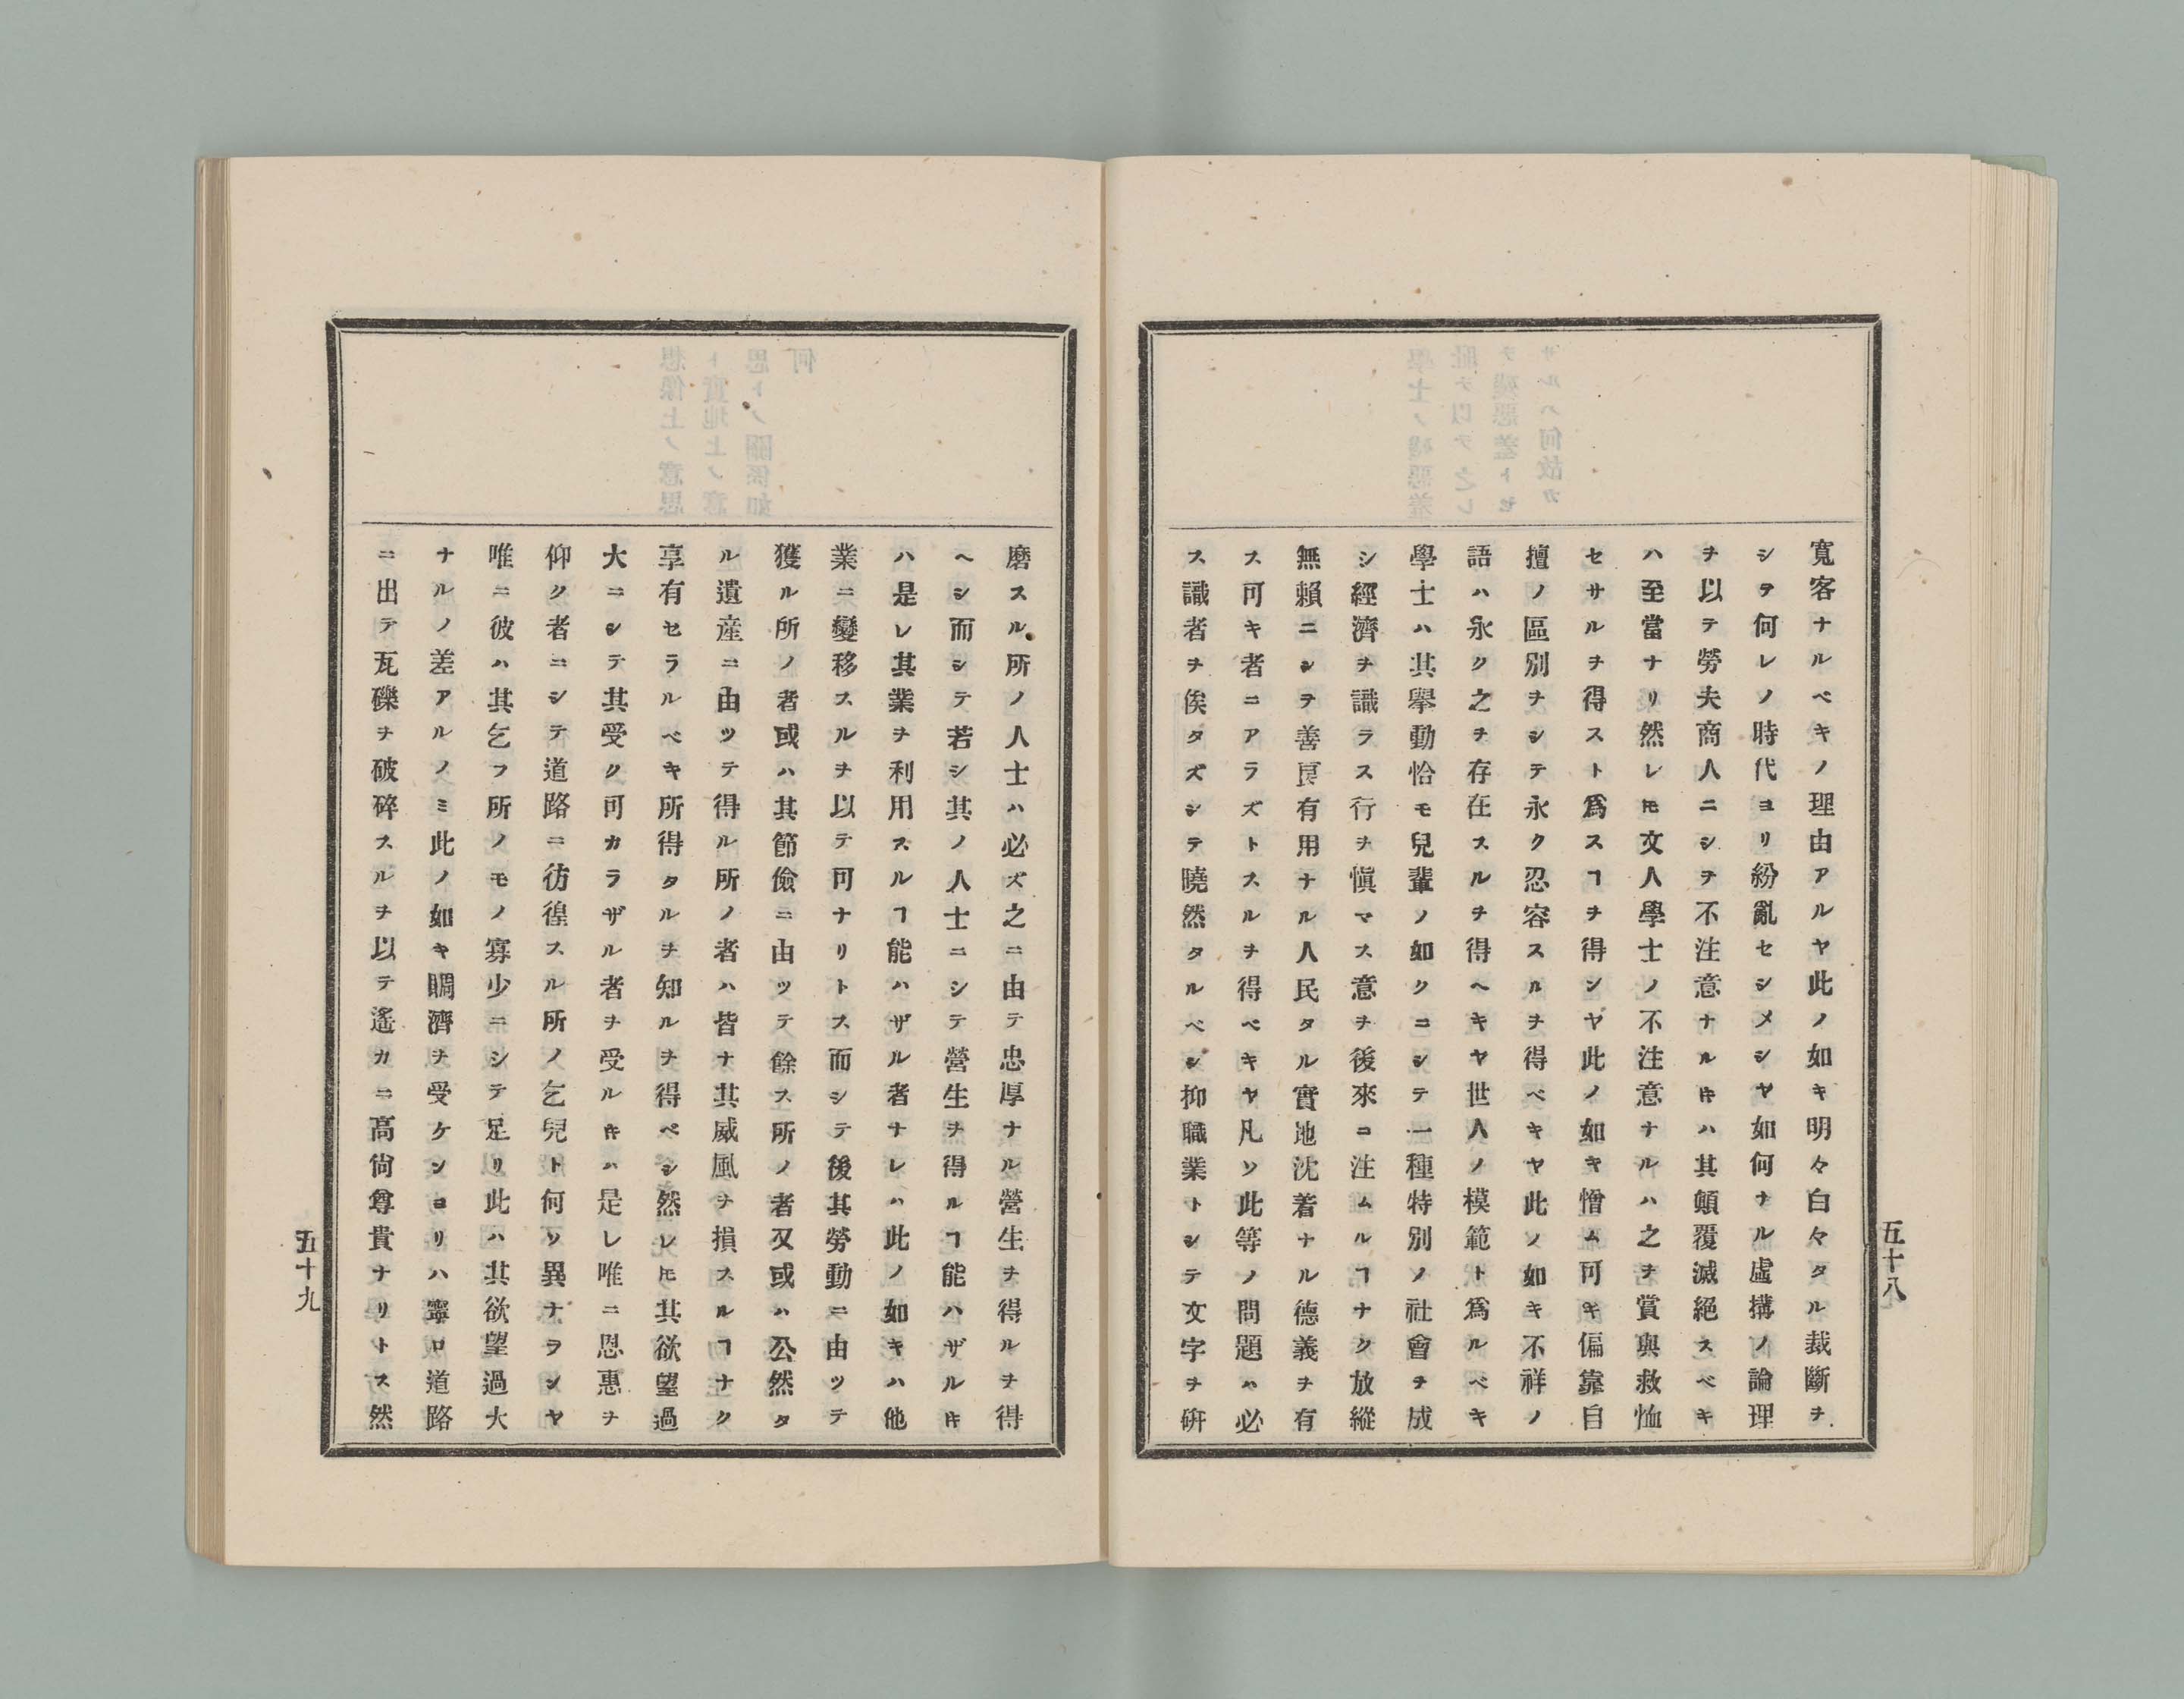 寬容ナルベキノ理由アルヤ此ノ如キ明々白々タル裁斷ヲ
シテ何レノ時代ヨリ紛亂セシメシヤ如何ナル虛搆ノ論理
ヲ以テ勞夫商人ニシヲ不注意ナルキハ其顛覆滅絕スベキ
ハ至當ナリ然レ𪜈文人學士ノ不注意ナルハ之ヲ賞與救恤
セサルヲ得スト爲スヿヲ得ンヤ此ノ如キ憎ム可キ偏靠自
擅ノ區別ヲシテ永ク忍容スルヲ得ベキヤ此ノ如キ不祥ノ
語ハ永ク之ヲ存在スルヲ得ヘキヤ世人ノ模範ト爲ルベキ
學士ハ其擧動恰モ兒輩ノ如クニシテ一種特別ノ社會ヲ成
シ經濟ヲ識ラス行ヲ愼マス意ヲ後來ニ注ムルヿナク放縱
無賴ニシヲ善良有用ナル人民タル實地沈着ナル德義ヲ有
ス可キ者ニアラズトスルヲ得ベキヤ凡ソ此等ノ問題ハ必
ス識者ヲ俟タズシテ曉然タルベシ抑職業トシテ文字ヲ硏
五十八
磨スル所ノ人士ハ必ズ之ニ由テ忠厚ナル營生ヲ得ルヲ得
ヘシ而シテ若シ其ノ人士ニシテ營生ヲ得ルヿ能ハザルキ
ハ是レ其業ヲ利用スルヿ能ハザル者ナレハ此ノ如キハ他
業ニ變移スルヲ以テ可ナリトス而シテ後其勞動ニ由ツテ
獲ル所ノ者或ハ其節儉ニ由ツテ餘ス所ノ者又或ハ公然タ
ル遺産ニ由ツテ得ル所ノ者ハ皆ナ其威風ヲ損スルヿナク
享有セラルベキ所得タルヲ知ルヲ得ベシ然レ𪜈其欲望過
大ニシテ其受ク可カラザル者ヲ受ルキハ是レ唯ニ恩惠ヲ
仰ク者ニシテ道路ニ彷徨スル所ノ乞兒ト何ソ異ナヲンヤ
唯ニ彼ハ其乞フ所ノモノ寡少ニシテ足リ此ハ其欲望過大
ナルノ差アルノミ此ノ如キ賙濟ヲ受ケンヨリハ寧ロ道路
ニ出テ瓦礫ヲ破碎スルヲ以テ遙カニ高尙尊貴ナリトス然
五十九